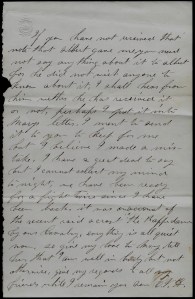 If you have not received that
note that albert gave me you need
not say any thing about it to albert
for he did not wish anyone to
know about it, I shall then from
him wether he has received it
or not, perhaps I put it into
Marys letter I meant to send
it to you to keep for me
but I believe I made a mis
take. I have a great deal to say
but I cannot collect my mind
to night, we have been ready
for a fight twice since I have
been back, it was on account of
the recent raid across the Rappahannock
by our cavalry, every thing is all quiet
now, so give my love to Mary, tell
her that I am well in body, but not
otherwise, give my regards to all
friends while I remain your son